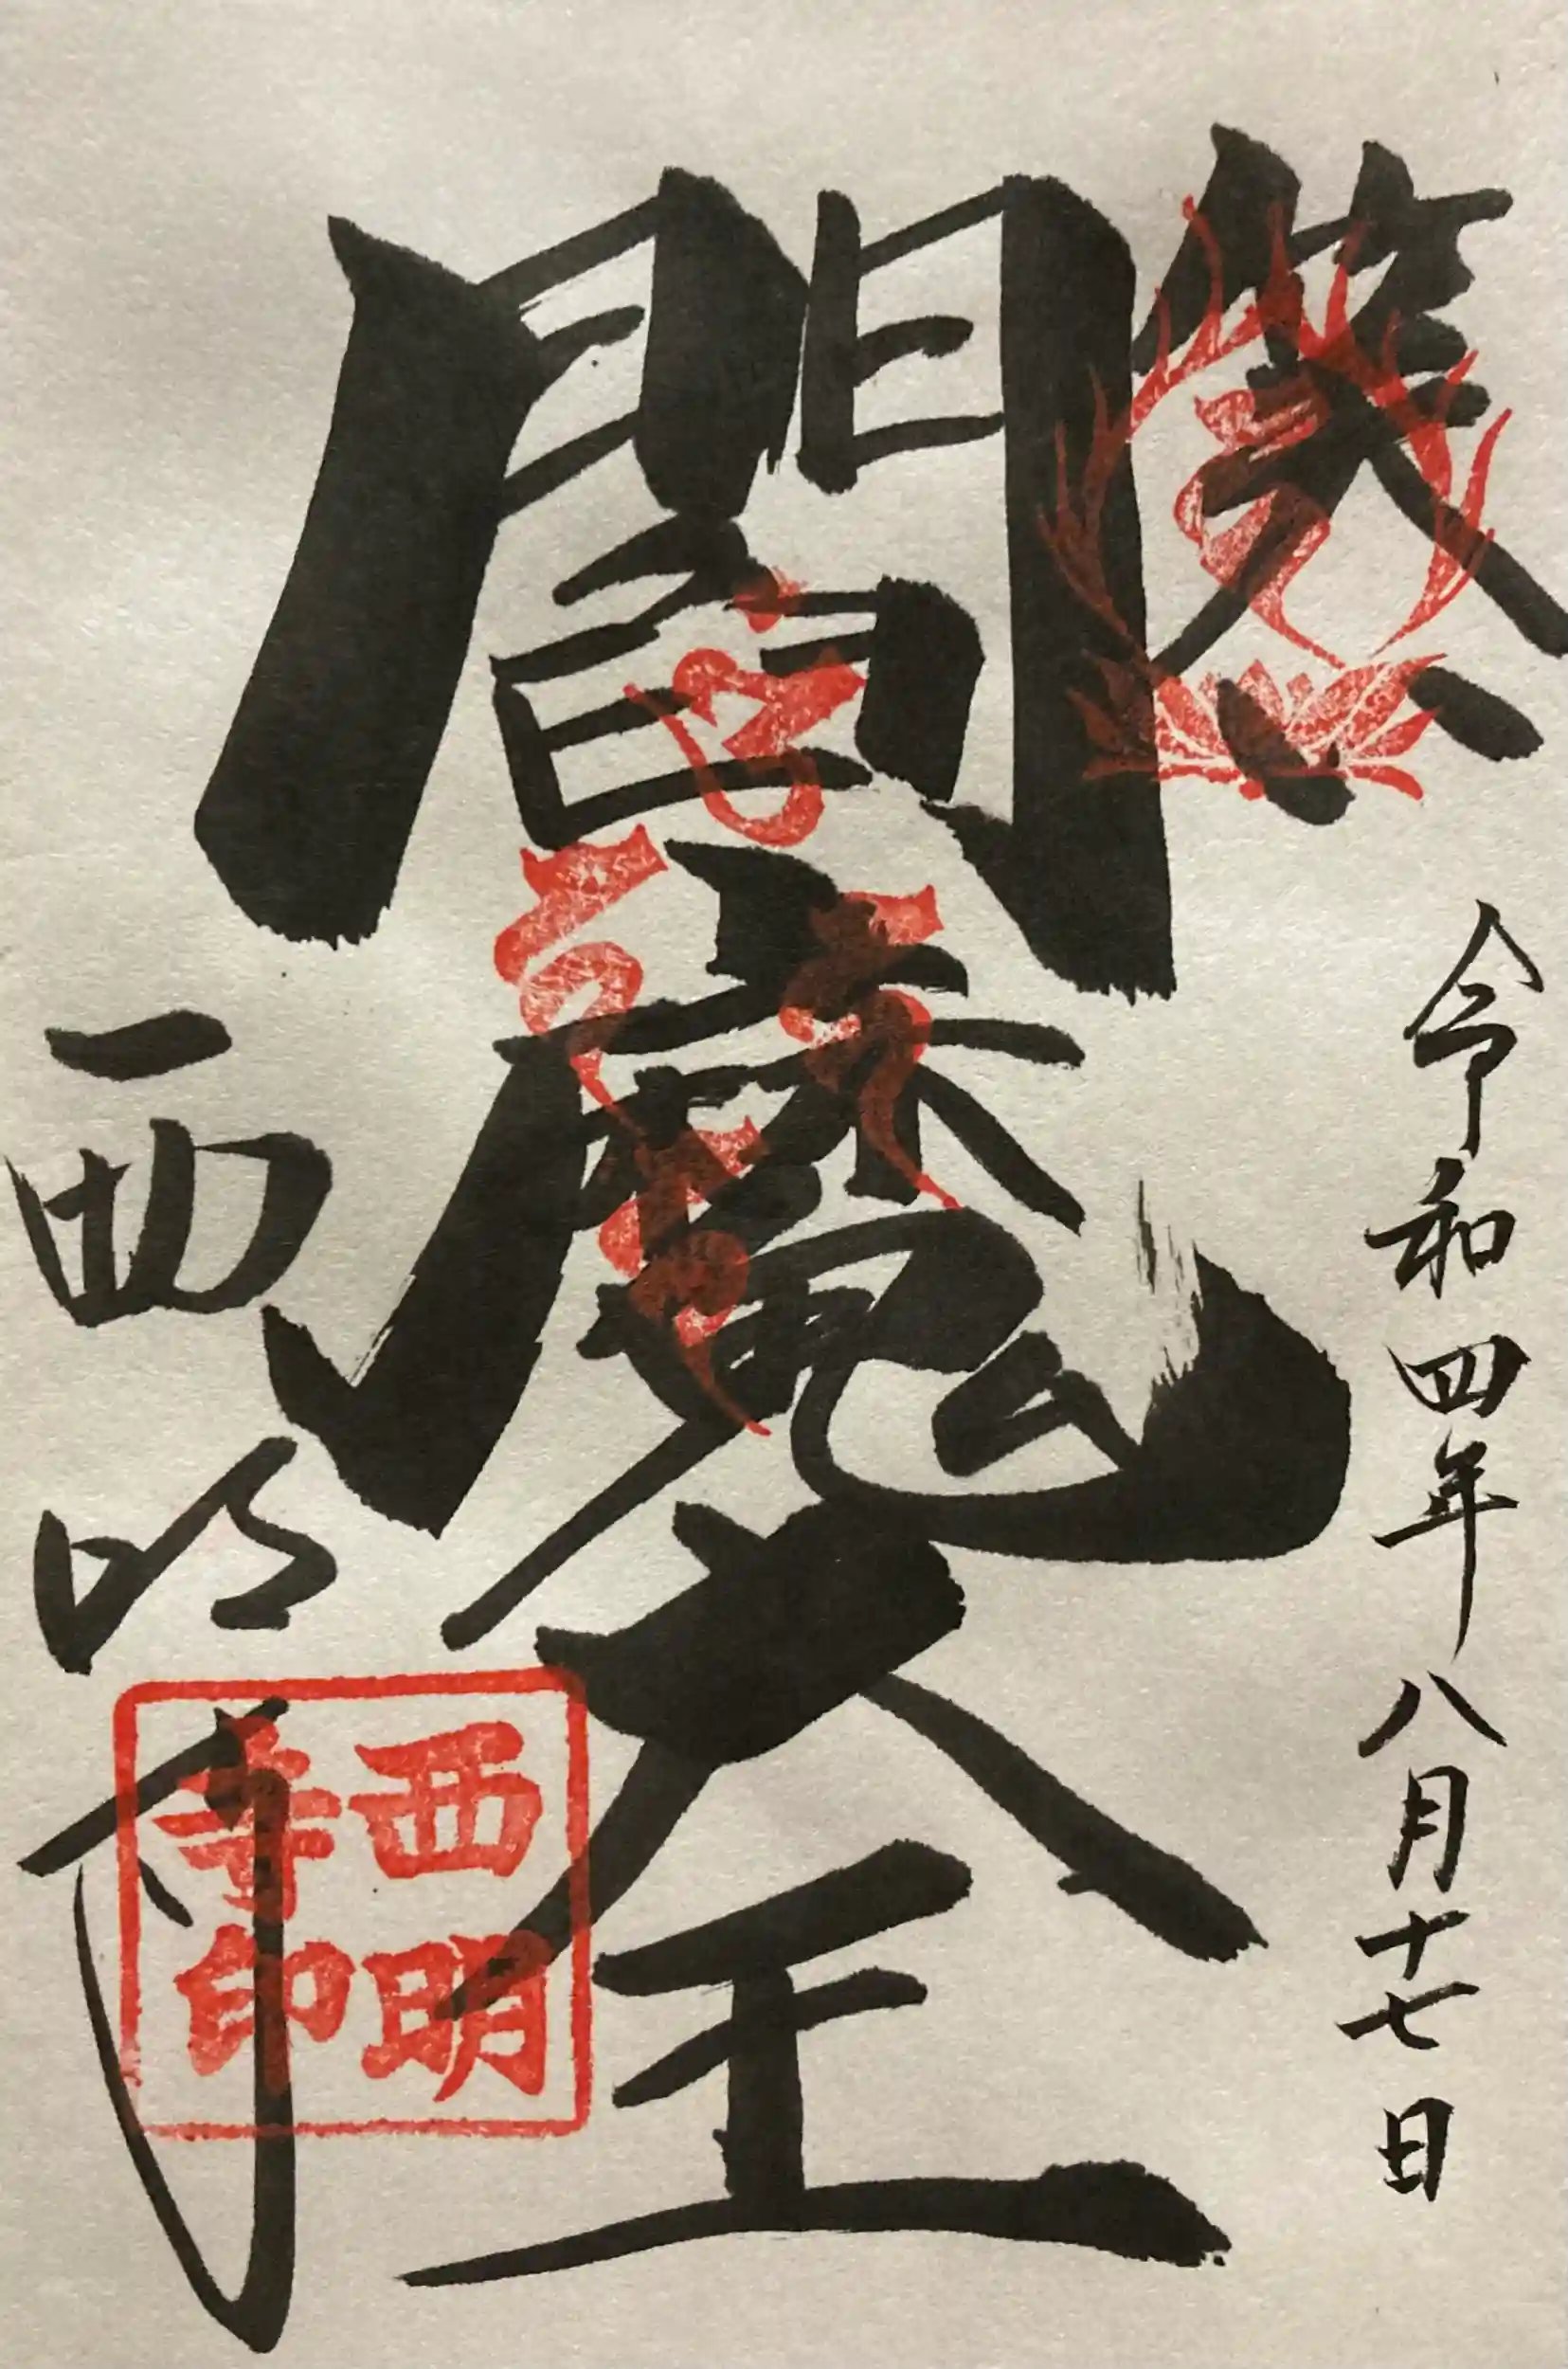 笑い
令和四年八月十七日
閻魔大王
西明寺
西明
寺印